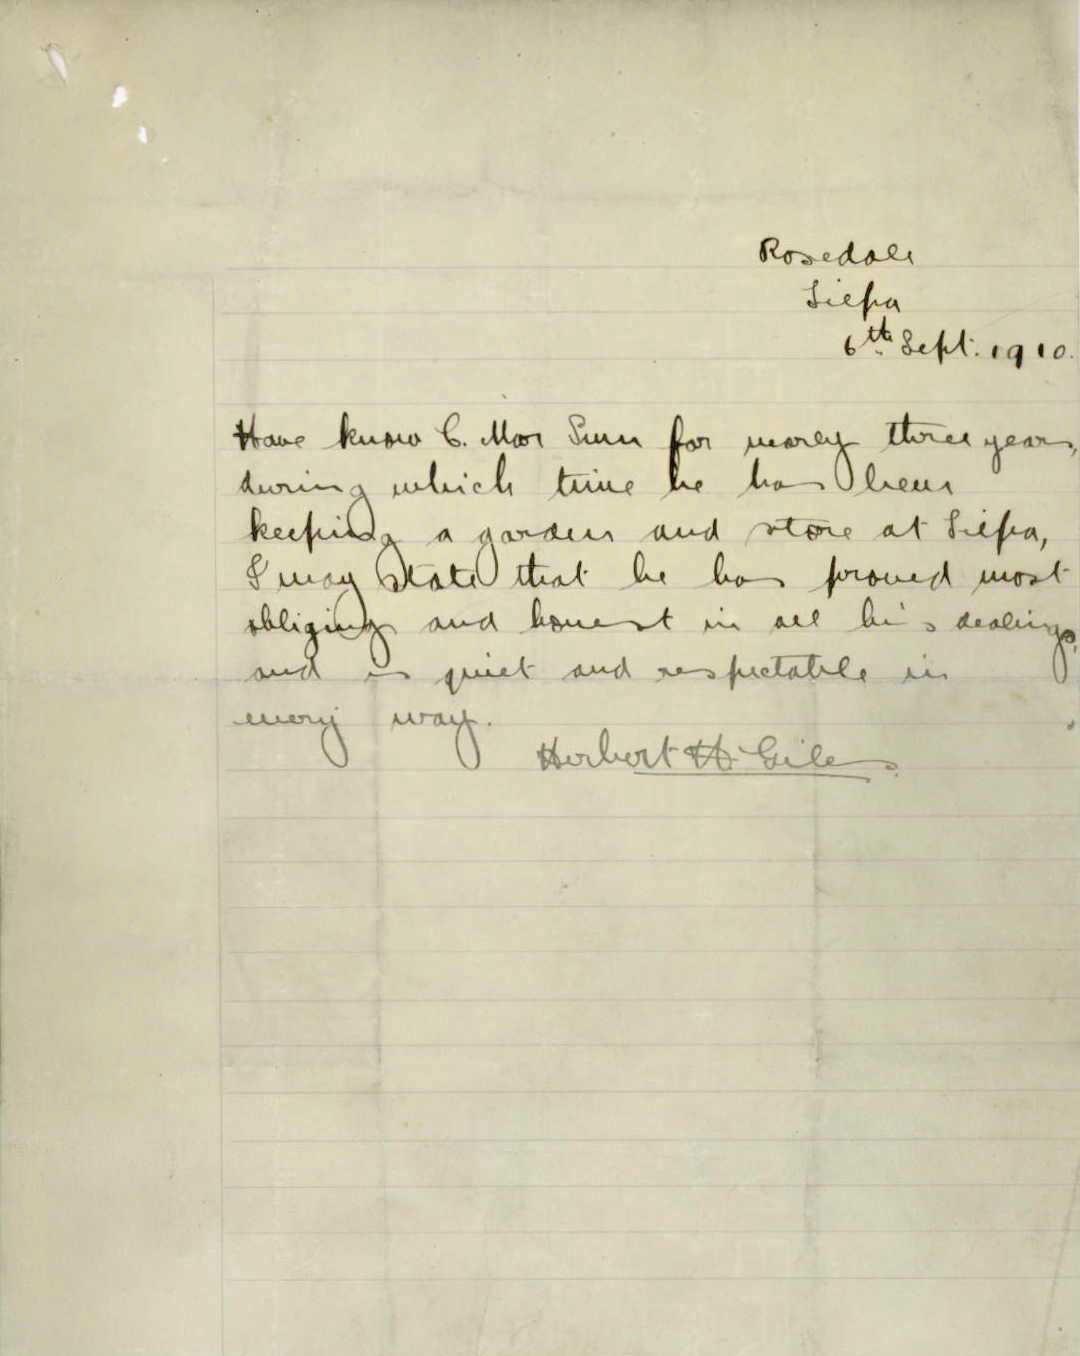 Rosedale
Liepa
6th Sept. 1910.
Have know C. Mar Sum for nearly three years,
during which time he has been
keeping a garden and store at Liepa,
I may state that he has proved most
obliging and honest in all his dealings,
and is quiet and respectable in
every way.
Herbert H. Giles.